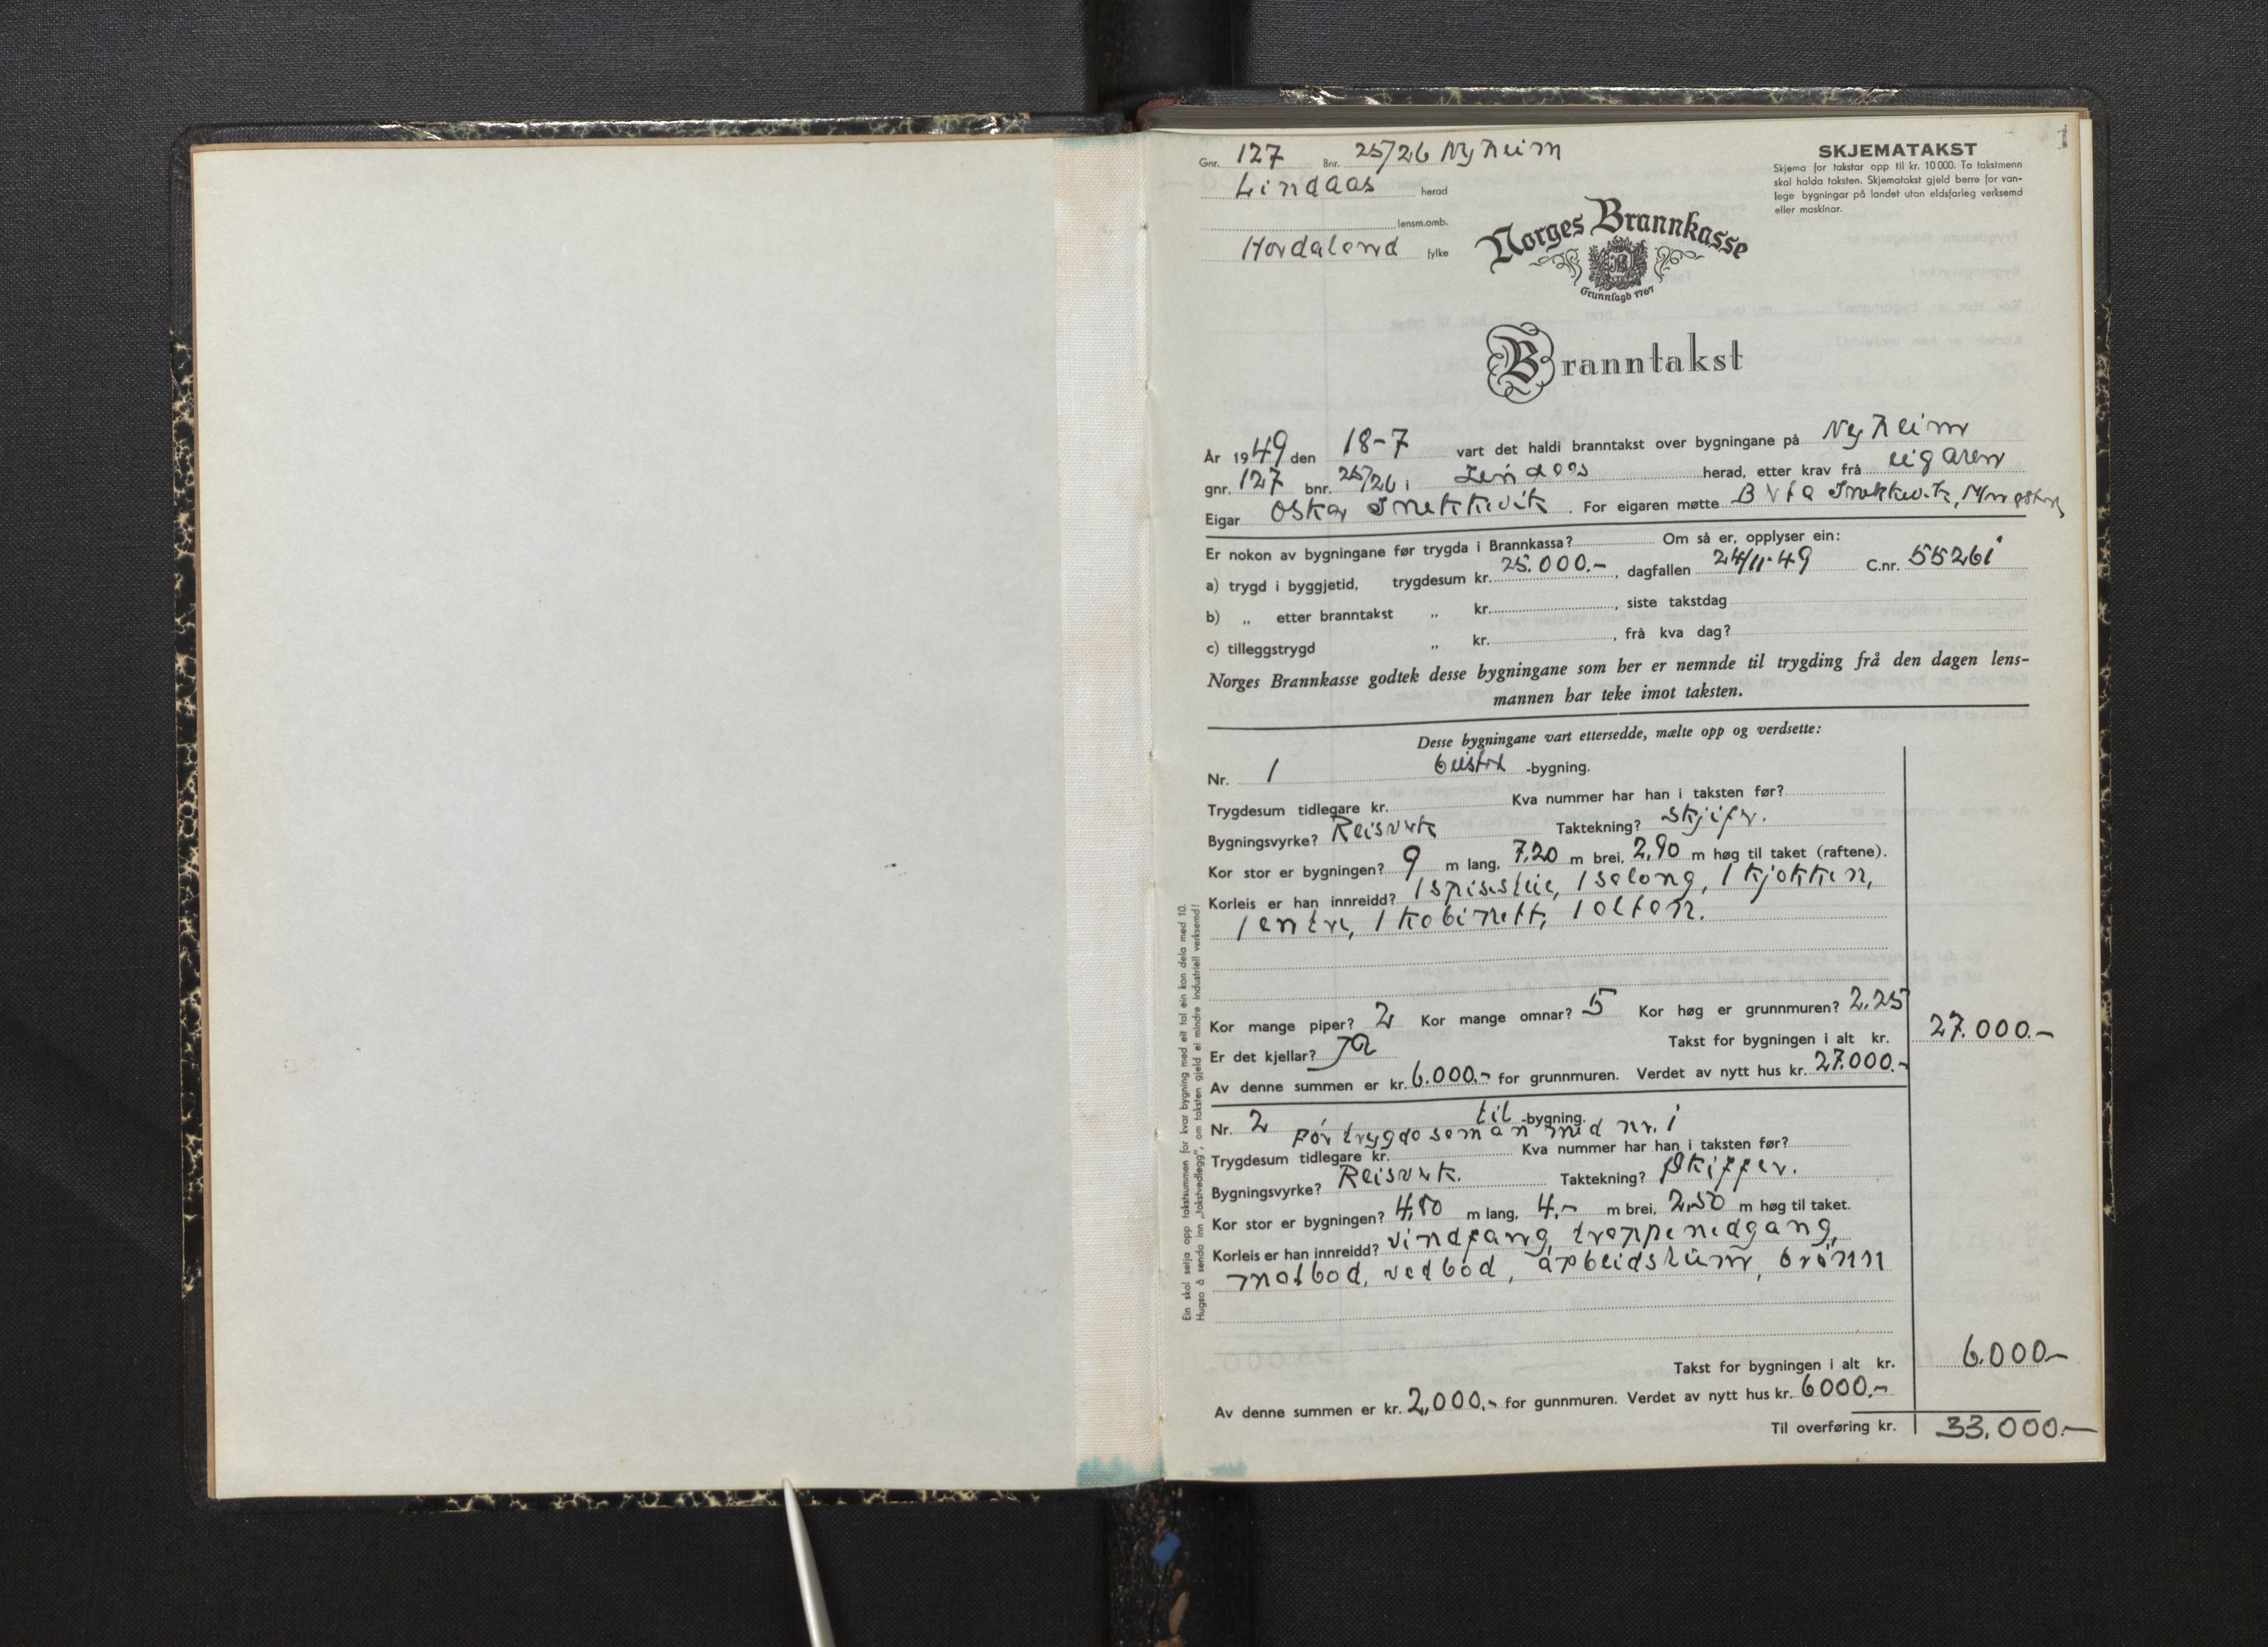 Gnr. 127 Bnr. 25/26 Nyheim
Lindaas herad
lensm.omb.
Hordaland fylke
SKJEMATAKST
Skjema for takstar opp til kr. 10 000. To takstmenn
skal halda taksten. Skjematakst gjeld berre for van-
lege bygningar på landet utan eldsfarleg verksemd
eller maskinar.
Norges Brannkasse
Grunnlagd 1767
Branntakst
År 1949 den 18-7 vart det haldi branntakst over bygningane på Nyheim
gnr. 127 bnr. 25/26 i Lindaas herad, etter krav frå eigaren
Eigar Oskar Snekkevik. For eigaren møtte Snekkevik,
Er nokon av bygningane før trygda i Brannkassa? Om så er, opplyser ein:
a) trygd i byggjetid, trygdesum kr. 25.000.-, dagfallen 24/11-49 C.nr. 55261
b) „ etter branntakst „ kr. , siste takstdag
c) tilleggstrygd „ kr. , frå kva dag?
Norges Brannkasse godtek desse bygningane som her er nemnde til trygding frå den dagen lens-
mannen har teke imot taksten.
Desse bygningane vart ettersedde, mælte opp og verdsette:
Nr. 1 -bygning.
Trygdesum tidlegare kr. Kva nummer har han i taksten før?
Bygningsvyrke? Reisverk Taktekning? Skjifer.
Kor stor er bygningen? 9 m lang, 7,20 m brei, 2,90 m høg til taket (raftene).
Korleis er han innreidd? 1 spisestue, 1 salong, 1 kjøkken,
1 entre, 1 kabinett, 1 altan.
Kor mange piper? 2 Kor mange omnar? 5 Kor høg er grunnmuren? 2.25
Er det kjellar? Ja Takst for bygningen i alt kr. 27.000.-
Av denne summen er kr. 6.000.- for grunnmuren. Verdet av nytt hus kr. 27.000.-
Nr. 2 til -bygning.
Før trygda saman med nr. 1
Trygdesum tidlegare kr. Kva nummer har han i taksten før?
Bygningsvyrke? Reisverk. Taktekning? Skiffer.
Kor stor er bygningen? 4,80 m lang, 4,- m brei, 2,50 m høg til taket.
Korleis er han innreidd? Vindfang, trappenedgang,
matbod, vedbod, arbeidsrum, brønn
Takst for bygningen i alt kr. 6.000-
Av denne summen er kr. 2,000.- for gunnmuren. Verdet av nytt hus kr. 6000.-
Til overføring kr. 33.000.-
Ein skal setja opp takstsummen for kvar bygning med eit tal ein kan dela med 10.
Hugsa å senda inn „takstvedlegg", om taksten gjeld ei mindre industriell verksemd!